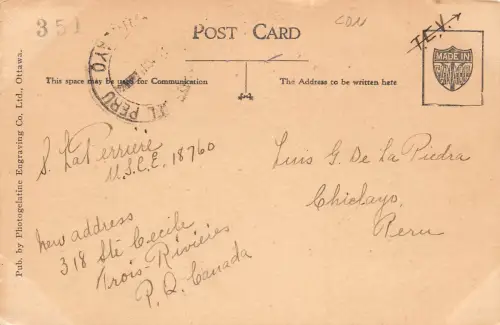 351
POST CARD
CON
T.E.V.
MADE IN
This space may be used for Communication
The Address to be written here
EL PERU
S. LaPerrière
U.S.C.E. 18760
New address
318 Ste Cecile
Trois-Rivières
P.Q. Canada
Luis G. De La Piedra
Chiclayo,
Peru
Pub. by Photogelatine Engraving Co. Ltd., Ottawa.